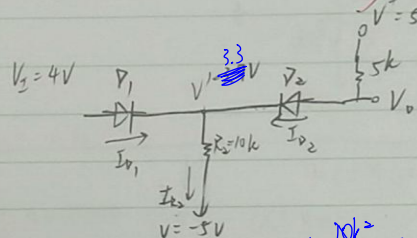 V = 5
3.3
V_I = 4V
D_1
V' =
V
D_2
5k
V_o
I_D1
R_2 = 10k
I_D2
I_R2
V = -5V